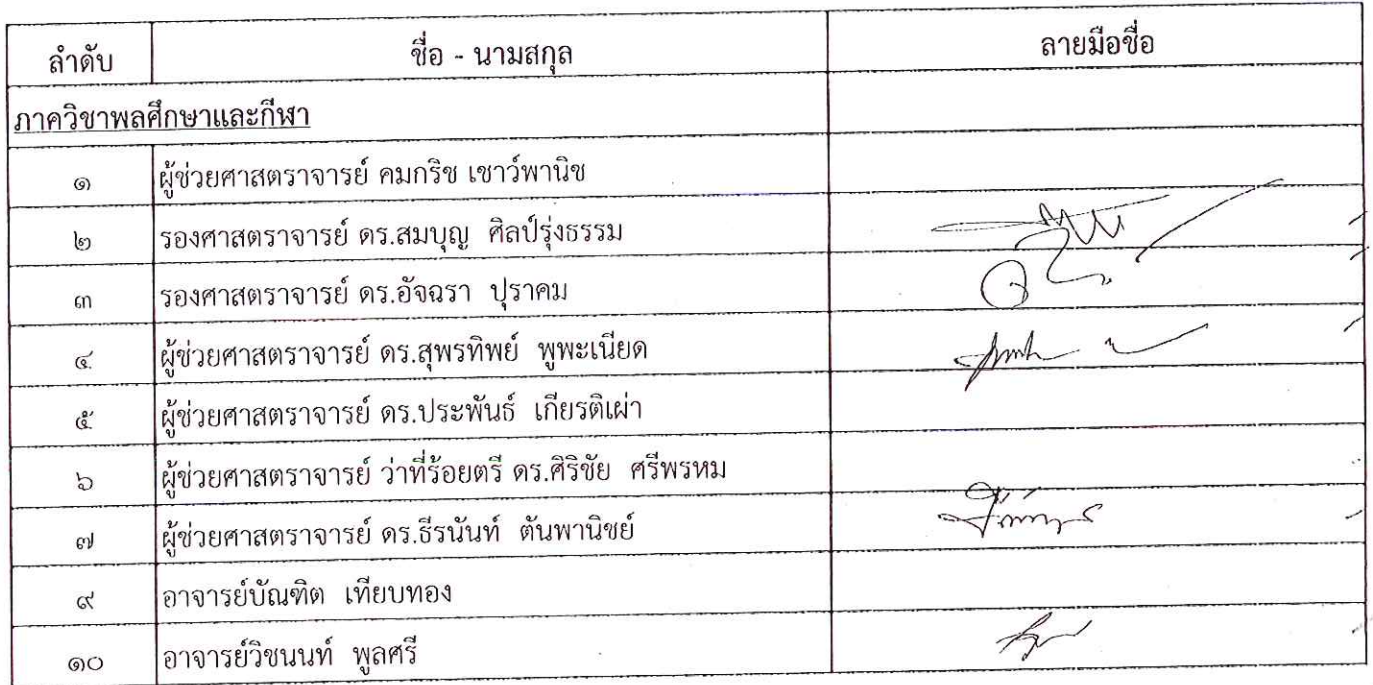 ลำดับ ชื่อ - นามสกุล ลายมือชื่อ
ภาควิชาพลศึกษาและกีฬา
๑ ผู้ช่วยศาสตราจารย์ คมกริช เชาว์พานิช
๒ รองศาสตราจารย์ ดร.สมบุญ ศิลป์รุ่งธรรม
๓ รองศาสตราจารย์ ดร.อัจฉรา ปุราคม
๔ ผู้ช่วยศาสตราจารย์ ดร.สุพรทิพย์ พูพะเนียด
๕ ผู้ช่วยศาสตราจารย์ ดร.ประพันธ์ เกียรติเผ่า
๖ ผู้ช่วยศาสตราจารย์ ว่าที่ร้อยตรี ดร.ศิริชัย ศรีพรหม
๗ ผู้ช่วยศาสตราจารย์ ดร.ธีรนันท์ ตันพานิชย์
๙ อาจารย์บัณฑิต เทียบทอง
๑๐ อาจารย์วิชนนท์ พูลศรี